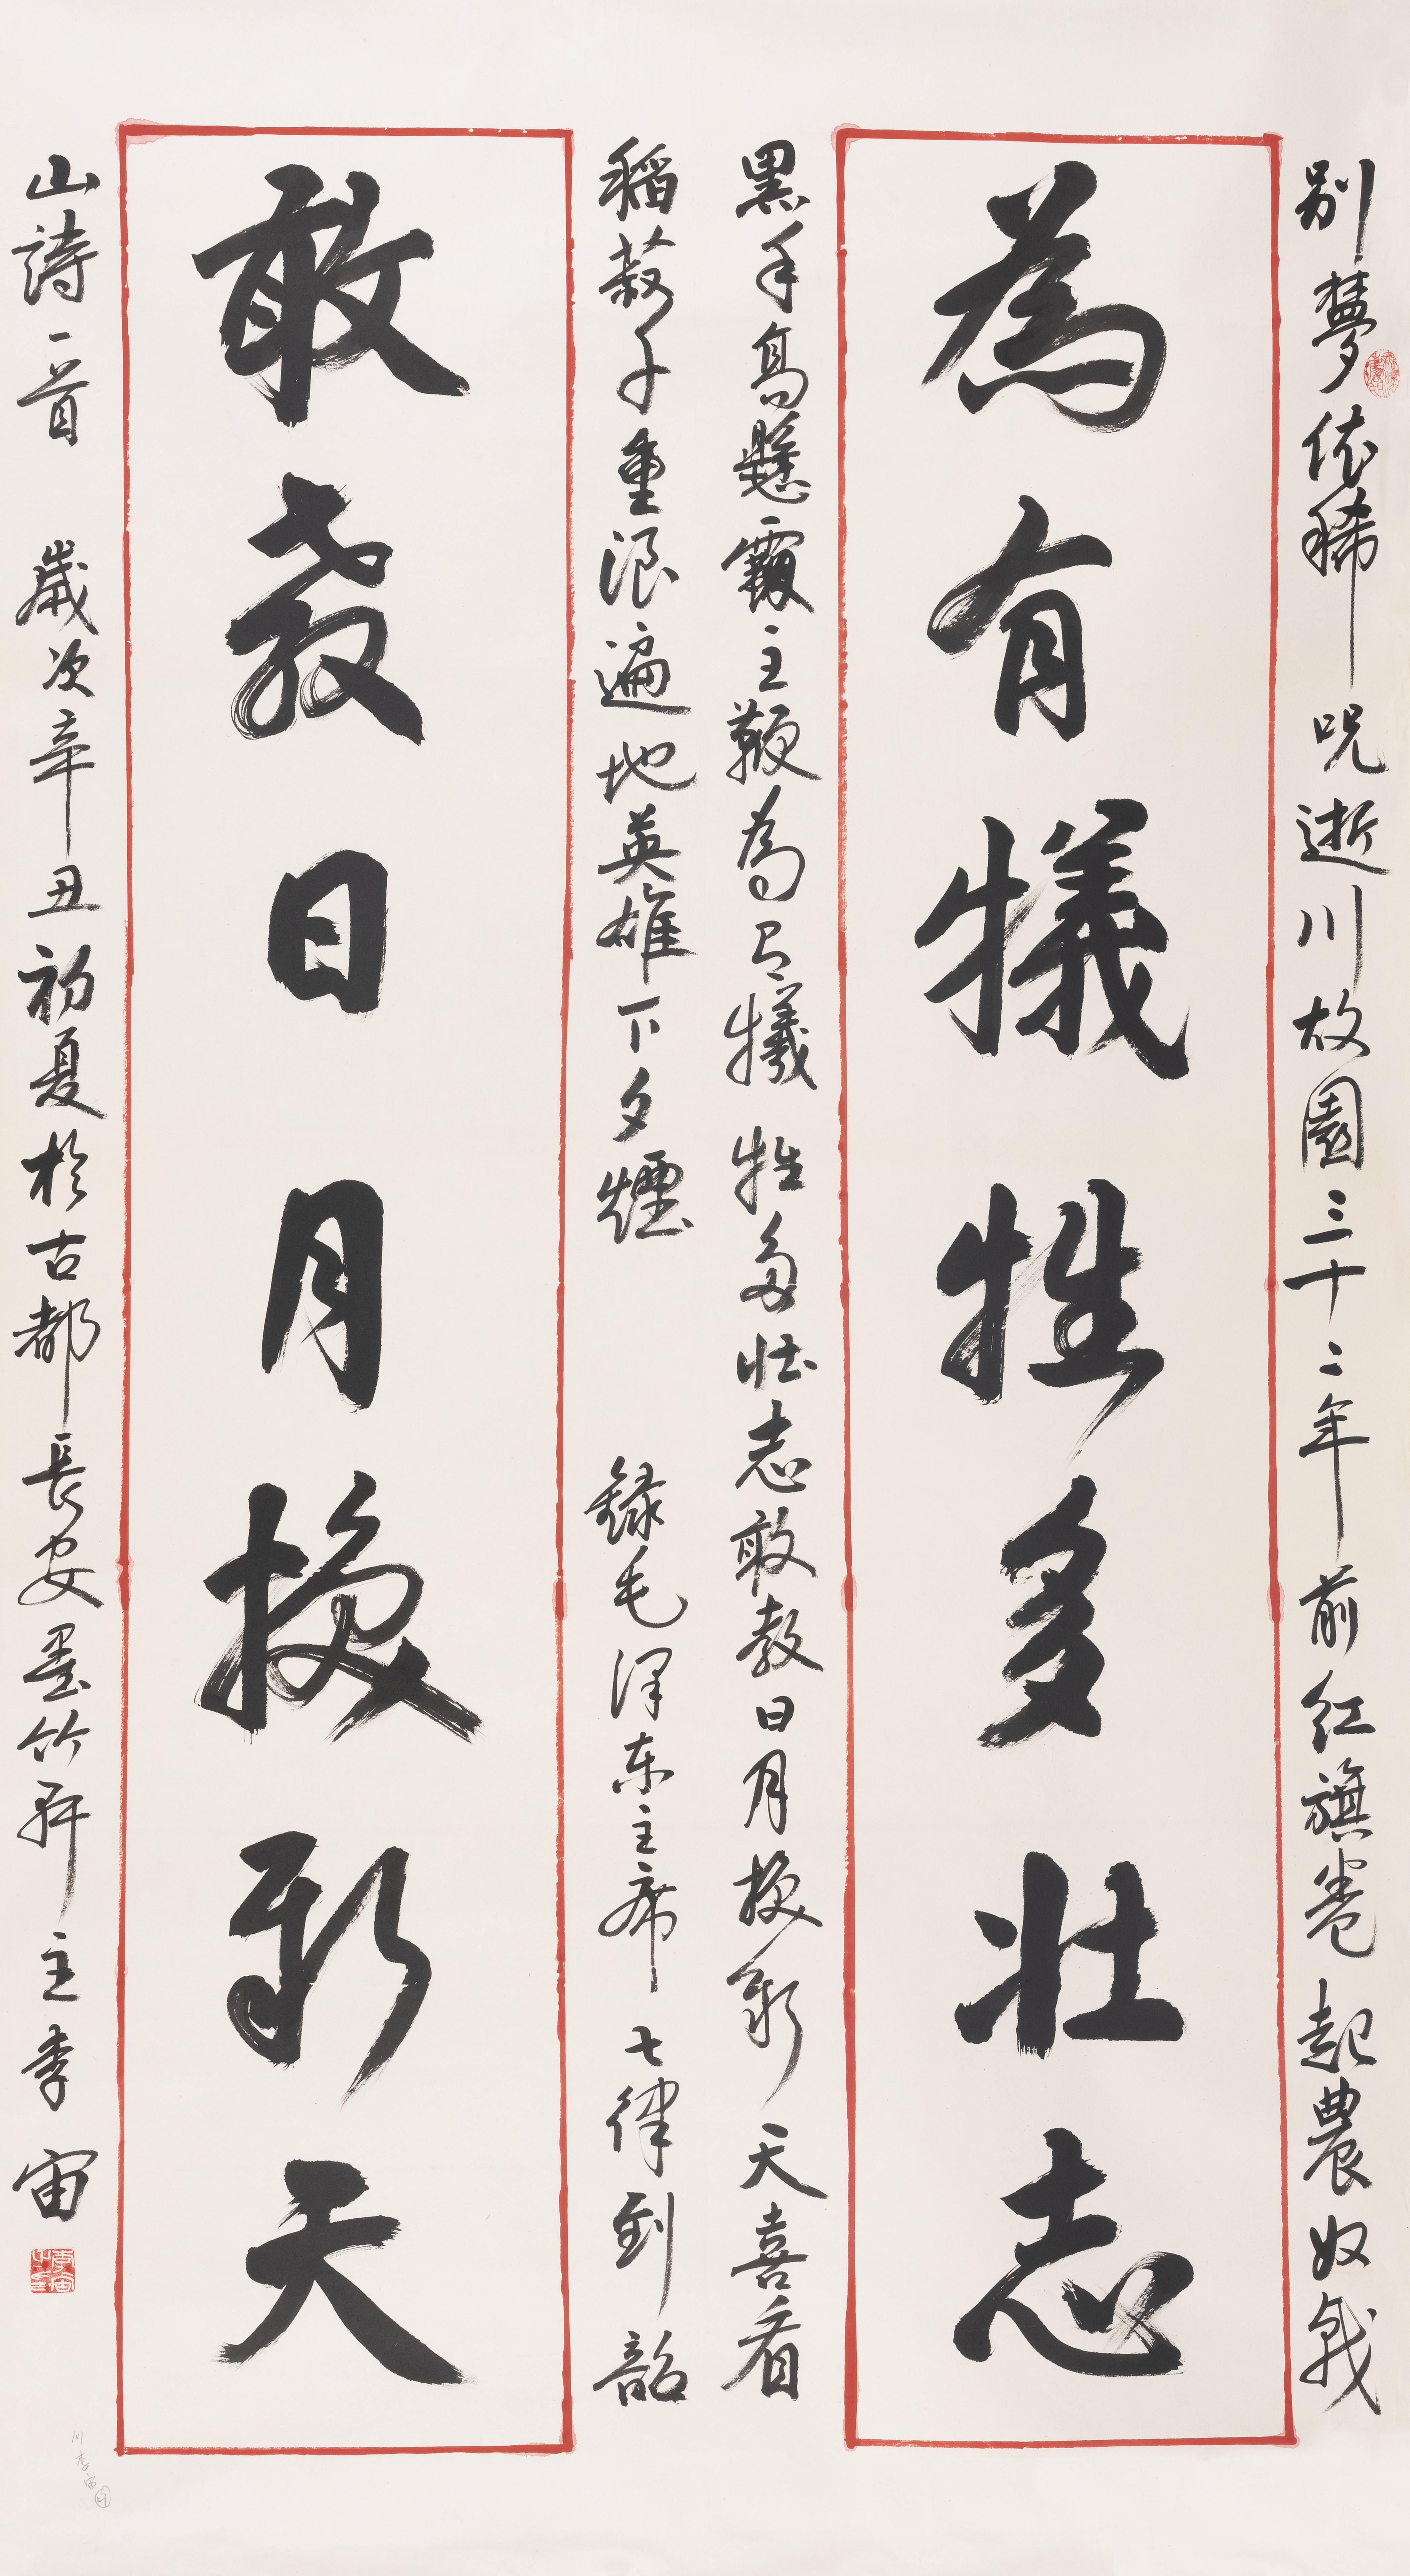 別夢依稀呪逝川故園三十二年前紅旗卷起農奴戟
為有犧牲多壯志
黑手高懸霸主鞭為有犧牲多壯志敢教日月換新天喜看
稻菽千重浪遍地英雄下夕煙 録毛澤东主席七律到韶
敢教日月換新天
山詩一首 歲次辛丑初夏於古都長安墨竹軒主李宙